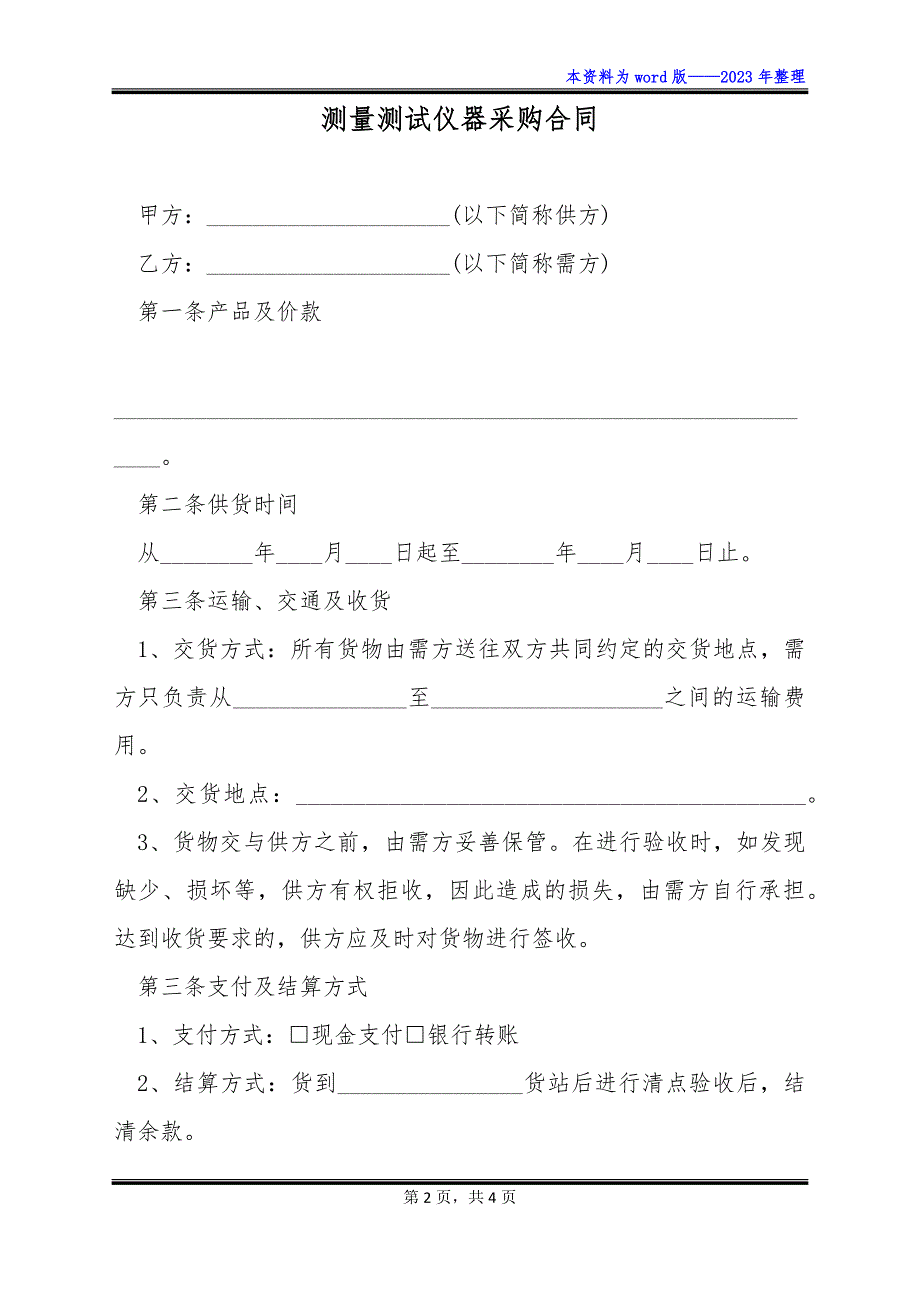 本资料为 word 版——2023 年整理
测量测试仪器采购合同
甲方：_____________________(以下简称供方)
乙方：_____________________(以下简称需方)
第一条产品及价款
___________________________________________________________
____。
第二条供货时间
从________年____月____日起至________年____月____日止。
第三条运输、交通及收货
1、交货方式：所有货物由需方送往双方共同约定的交货地点，需
方只负责从_______________至____________________之间的运输费
用。
2、交货地点：____________________________________________。
3、货物交与供方之前，由需方妥善保管。在进行验收时，如发现
缺少、损坏等，供方有权拒收，因此造成的损失，由需方自行承担。
达到收货要求的，供方应及时对货物进行签收。
第三条支付及结算方式
1、支付方式：□现金支付□银行转账
2、结算方式：货到________________货站后进行清点验收后，结
清余款。
第 2 页，共 4 页